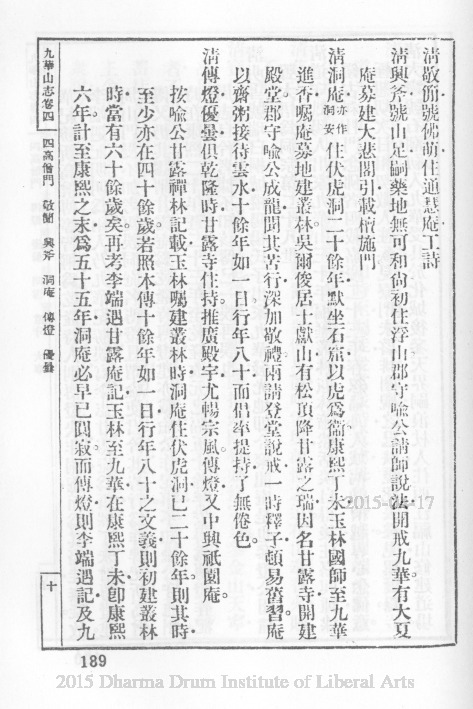 清敬䈎號佛萌住通慧庵工詩
清興斧號山足嗣藥地無可和尚初住浮山郡守喻公請師說法開戒九華有大夏
庵募建大悲閣引載檀施門
清洞庵亦作洞安住伏虎洞二十餘年默坐石窟以虎為衞康熙丁未玉林國師至九華
進香囑庵募地建叢林吳爾俊居士獻山有松頂降甘露之瑞因名甘露寺開建
殿堂郡守喻公成龍聞其苦行深加敬禮兩請登堂說戒一時釋子頓易舊習庵
以齋粥接待雲水十餘年如一日行年八十而倡率提持了無倦色
清傳燈優曇俱乾隆時甘露寺住持推廣殿宇尤暢宗風傳燈又中興祇園庵
按喻公甘露禪林記載玉林囑建叢林時洞庵住伏虎洞已二十餘年則其時
至少亦在四十餘歲若照本傳十餘年如一日行年八十之文義則初建叢林
時當有六十餘歲矣再考李端遇甘露庵記玉林至九華在康熙丁未卽康熙
六年計至康熙之末爲五十五年洞庵必早已圓寂而傳燈則李端遇記及九
九華山志卷四
四高僧門 敬䈎 興斧 洞庵 傳燈 優曇
十
189
2015-04-17
2015 Dharma Drum Institute of Liberal Arts